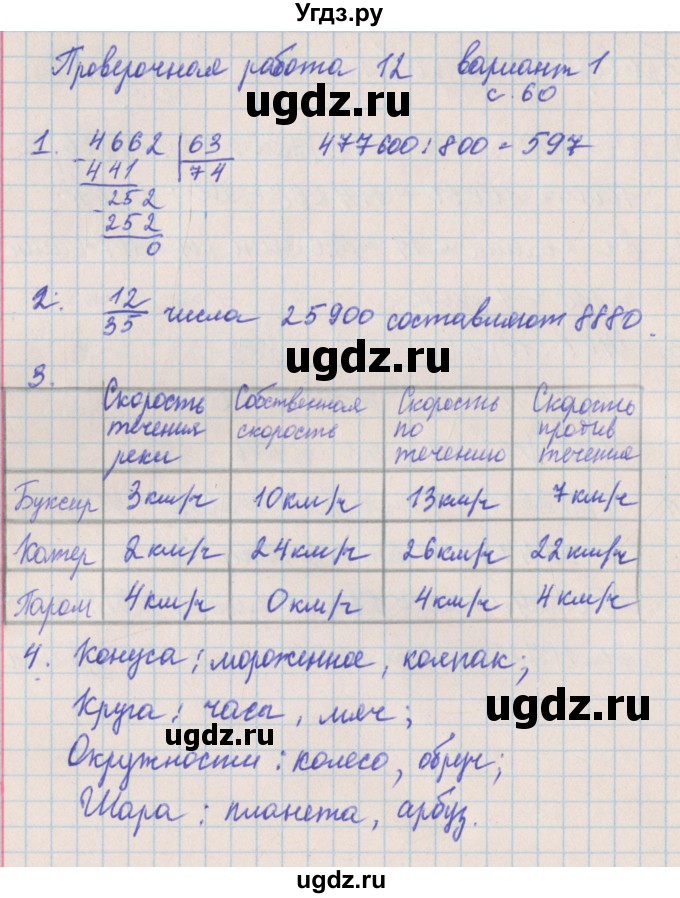 Угдз.ру
Проверочная работа 12 вариант 1
с. 60
ugdz.ru
1. 4662 | 63 477600 : 800 = 597
- 441 | 74
252
- 252
0
ugdz.ru
2. 12/35 числа 25900 составляют 8880.
ugdz.ru
3.
Скорость течения реки Собственная скорость Скорость по течению Скорость против течения
Буксир 3км/ч 10км/ч 13км/ч 7км/ч
Катер 2км/ч 24км/ч 26км/ч 22км/ч
Паром 4км/ч 0км/ч 4км/ч 4км/ч
4. Конуса : мороженное, колпак;
ugdz.ru
Круга : часы, мяч;
ugdz.ru
Окружности : колесо, обруч;
Шара : планета, арбуз.
ugdz.ru